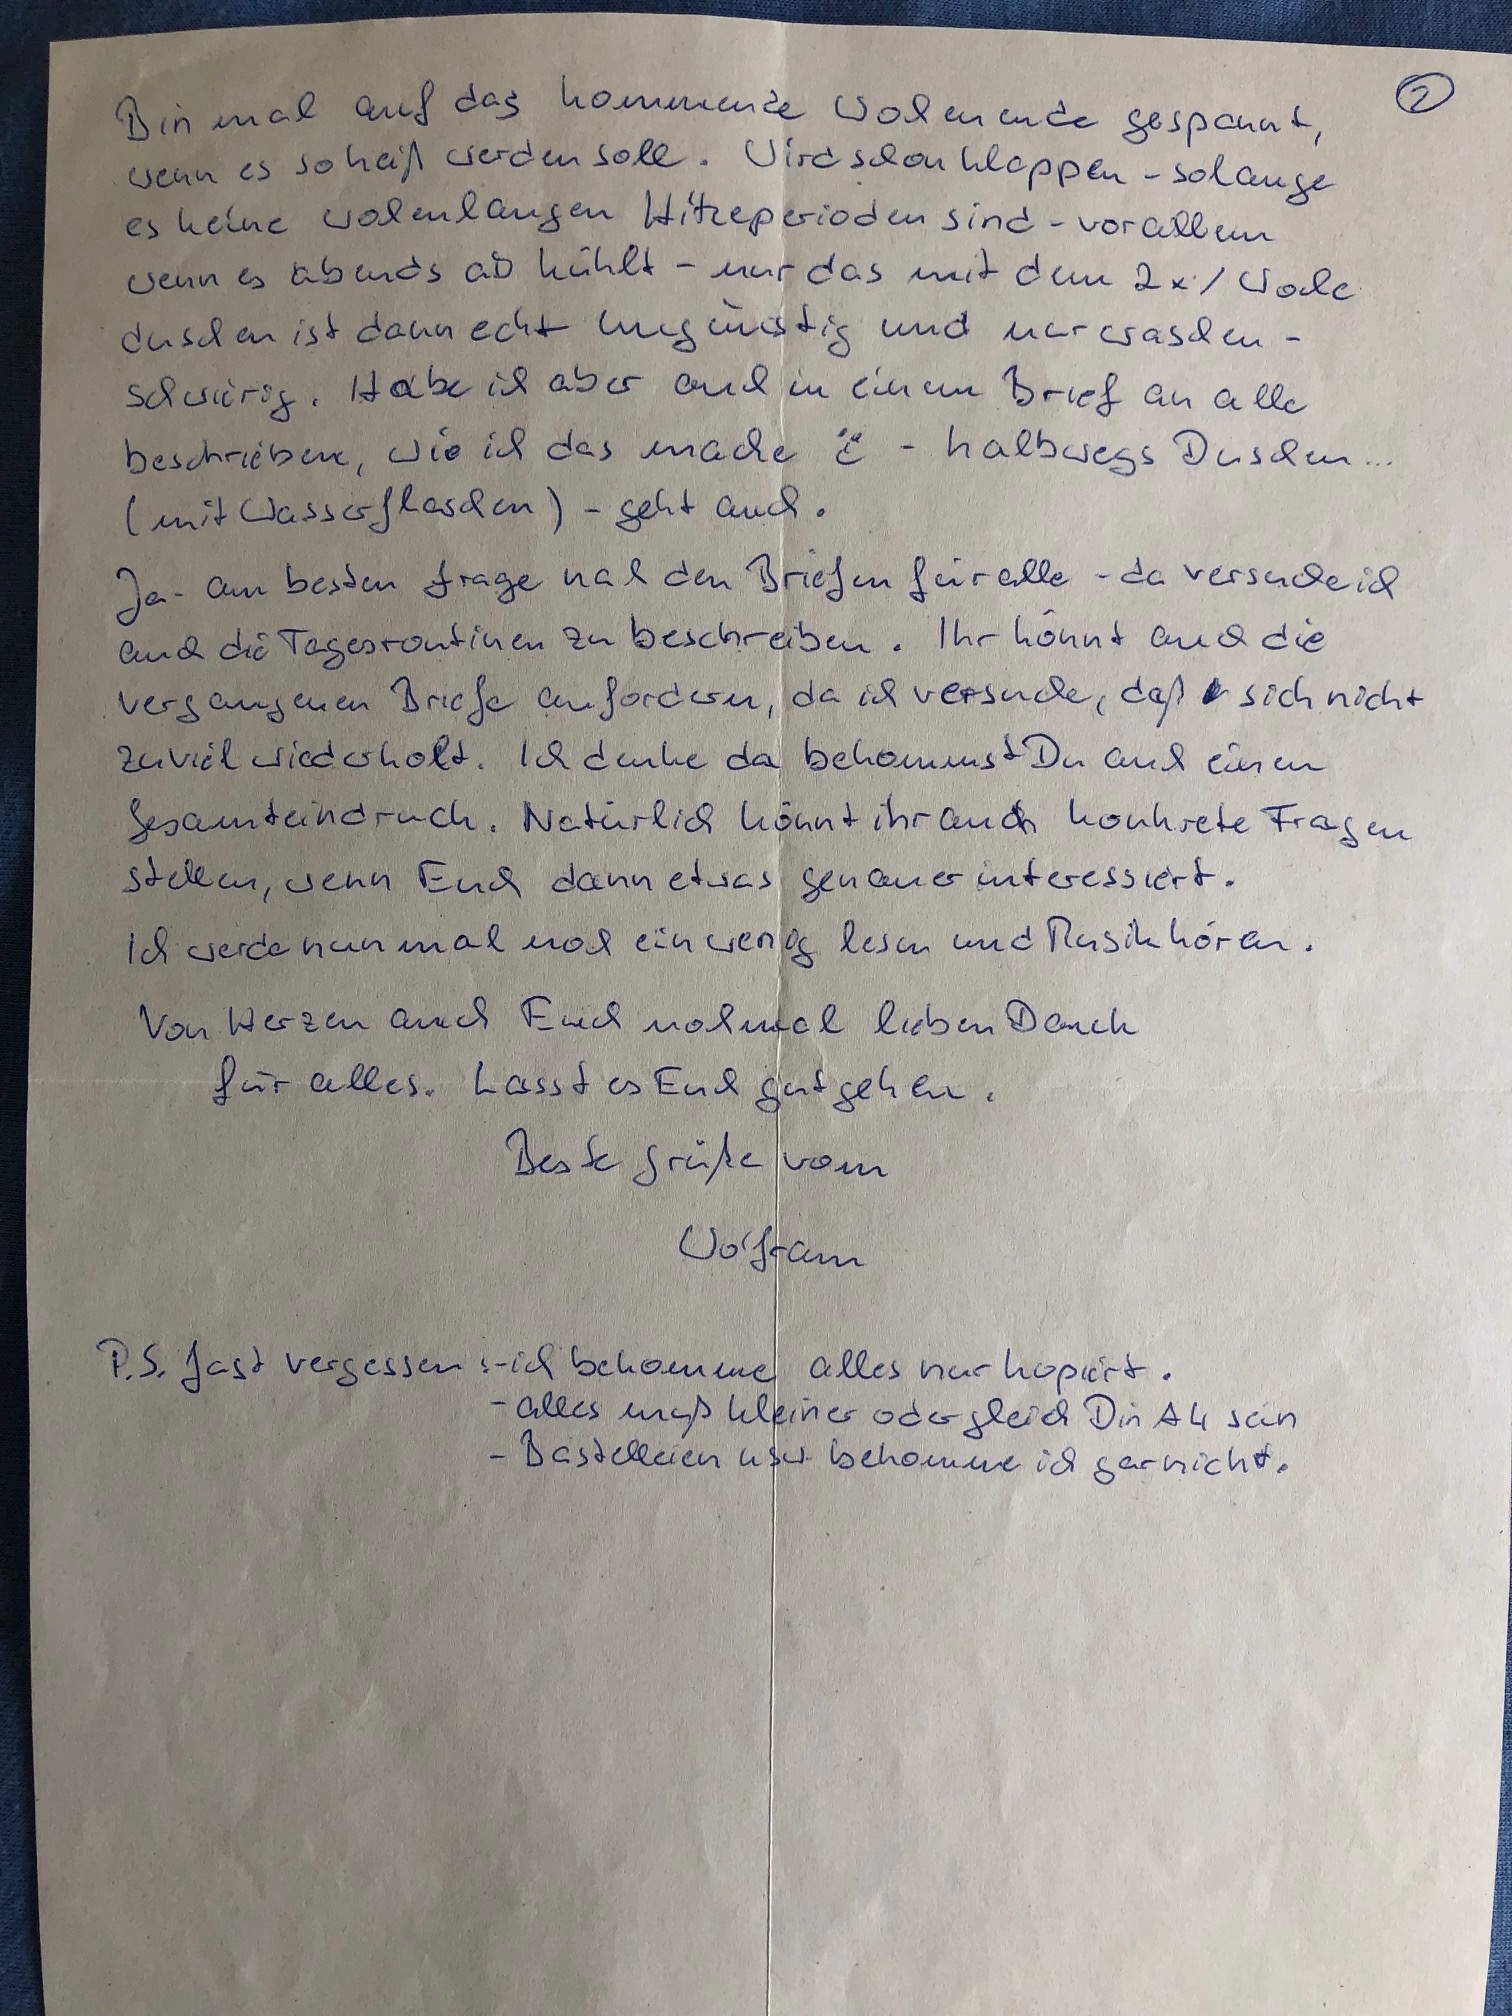 2
Bin mal auf das kommende Wochenende gespannt,
wenn es so heiß werden soll. Wird schon klappen - solange
es keine wochenlangen Hitzeperioden sind - vor allem
wenn es abends ab kühlt - nur das mit dem 2x / Woche
duschen ist dann echt ungünstig und nur waschen -
schwierig. Habe ich aber auch in einem Brief an alle
beschrieben, wie ich das mache - halbwegs Duschen...
(mit Wasserflaschen) - geht auch.
Ja - am besten frage nach den Briefen für alle - da versuche ich
auch die Tagesroutinen zu beschreiben. Ihr könnt auch die
vergangenen Briefe anfordern, da ich versuche, daß sich nicht
zuviel wiederholt. Ich denke da bekommst Du auch einen
Gesamteindruck. Natürlich könnt ihr auch konkrete Fragen
stellen, wenn Euch dann etwas genauer interessiert.
Ich werde nun mal noch ein wenig lesen und Musik hören.
Von Herzen auch Euch nochmal lieben Dank
für alles. Lasst es Euch gut gehen.
Beste Grüße vom
Wolfram
P.S. fast vergessen: - ich bekomme alles nur kopiert.
- alles muß kleiner oder gleich Din A4 sein
- Bastelleien usw bekomme ich gar nicht.